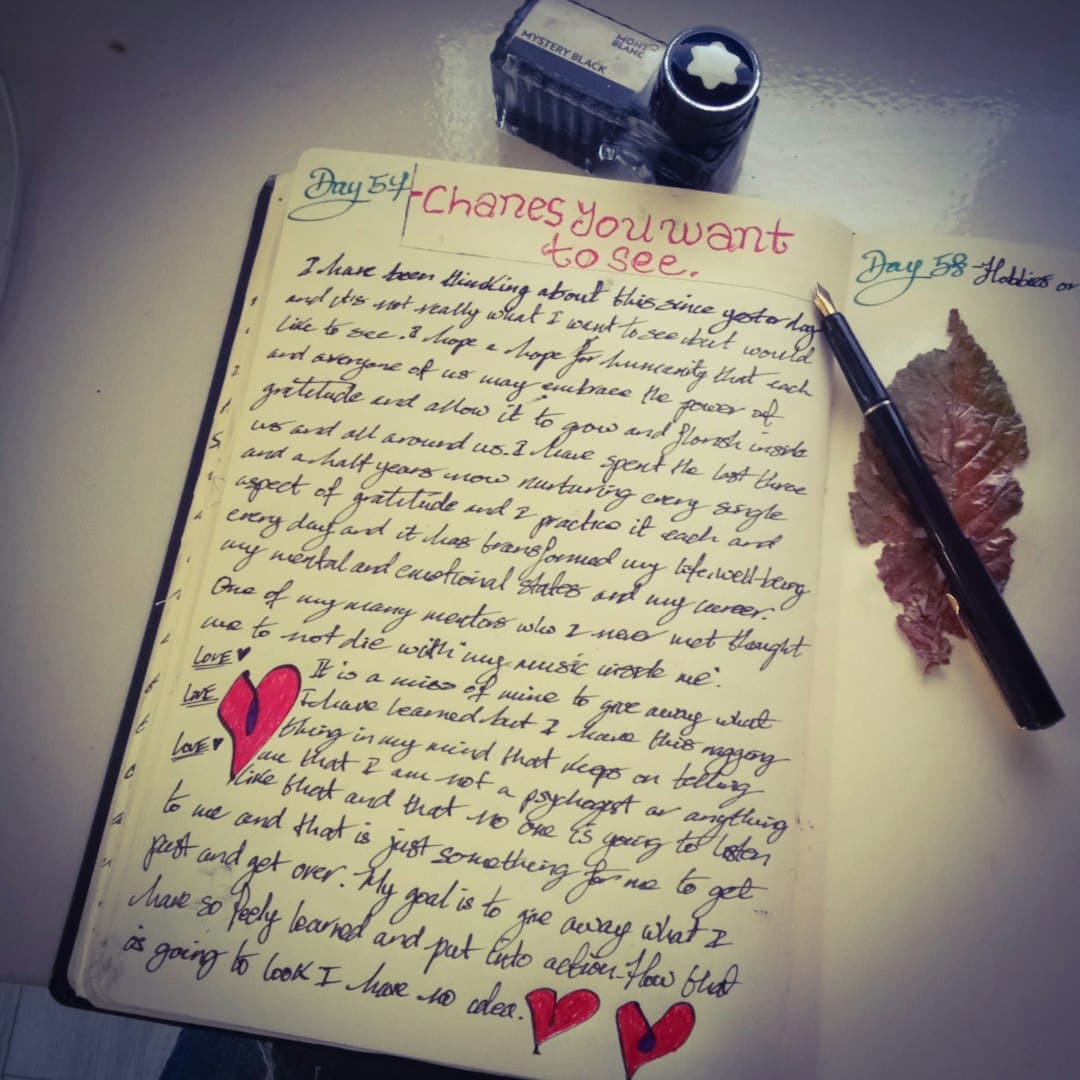 MONT
BLANC
MYSTERY BLACK
Day 54 - Chanes You want
to see.
I have been thinking about this since yesterday
and it's not really what I want to see but would
like to see. I hope a hope for humanity that each
and everyone of us may embrace the power of
gratitude and allow it to grow and florish inside
us and all around us. I have spent the last three
and a half years now nurturing every single
aspect of gratitude and I practice it each and
every day and it has transformed my life, well-being
my mental and emotional states and my career.
One of my many mentors who I never met thought
me to not die with "my music inside me".
LOVE ♥
It is a miss of mine to give away what
LOVE
I have learned but I have this nagging
thing in my mind that keeps on telling
LOVE ♥
me that I am not a psychogist or anything
like that and that no one is going to listen
to me and that is just something for me to get
past and get over. My goal is to give away what I
have so feely learned and put into action. How that
is going to look I have no idea.
Day 58 - Hobbies or